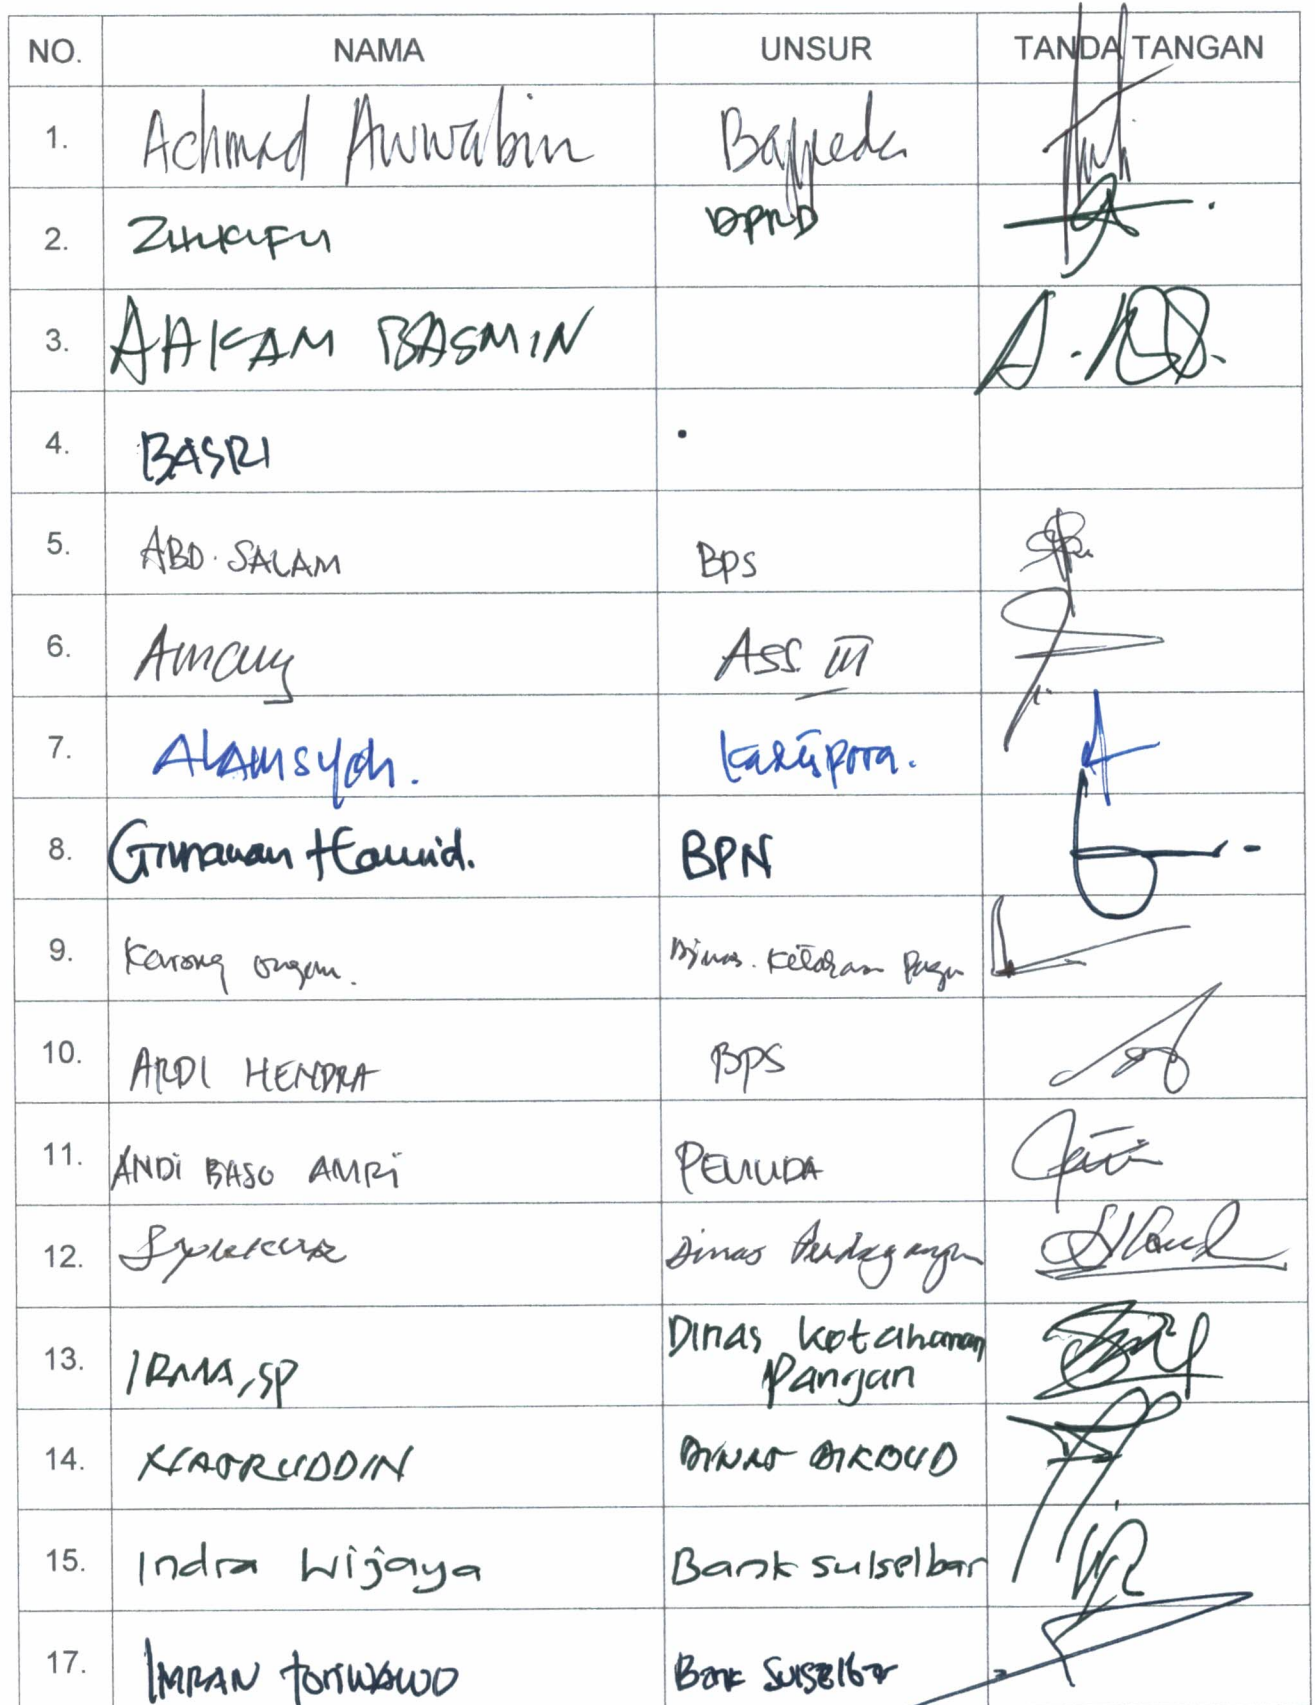 NO. NAMA UNSUR TANDA TANGAN
1. Achmad Awwabin Bappeda
2. DPRD
3. AHKAM BASMIN
4. BASRI
5. ABD. SALAM BPS
6. Amang Ass III
7. Alamsyah. Kadispora.
8. Gunawan Hamid. BPN
9. Dinas. Ketahanan Pangan
10. ARDI HENDRA BPS
11. ANDI BASO AMRI PEMUDA
12. Syukur Dinas Perdagangan
13. IRMA, SP Dinas Ketahanan
Pangan
14. NASRUDDIN DINAS DIKBUD
15. Indra Wijaya Bank sulselbar
17. IMRAN Bank Sulselbar